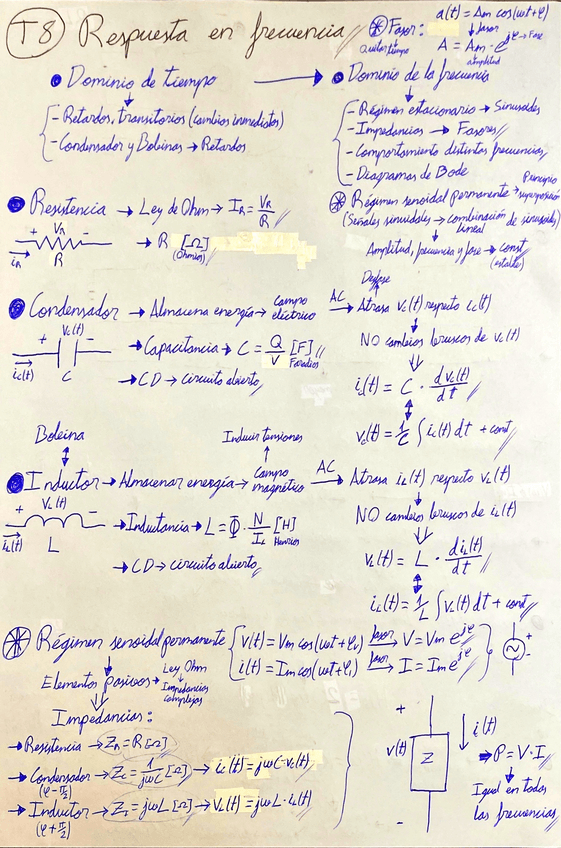 T8 Respuesta en frecuencia
Fasor: a(t) = Am cos(ωt+φ)
↓ fasor
Quitar tiempo A = Am · e^jφ → Fase
amplitud
• Dominio de tiempo → • Dominio de la frecuencia
- Retardos, transitorios (cambios inmediatos)
- Condensador y Bobinas → Retardos
- Régimen estacionario → Sinusoides
- Impedancias → Fasores
- Comportamiento distintas frecuencias
- Diagramas de Bode
Régimen senoidal permanente → Principio superposición
(Señales sinusoidales → combinación lineal de sinusoides)
Amplitud, frecuencia y fase → const (estables)
• Resistencia → Ley de Ohm → I_R = V_R/R
+ V_R -
i_R R
→ R [Ω] (Ohmios)
• Condensador → Almacena energía → campo eléctrico
AC → Atrasa vc(t) respecto ic(t)
Desfase
+ Vc(t) -
ic(t) C
→ Capacitancia → C = Q/V [F] Faradios
→ CD → circuito abierto
NO cambios bruscos de vc(t)
ic(t) = C · dvc(t)/dt
vc(t) = 1/C ∫ ic(t) dt + const
Bobina
Inducir tensiones
• Inductor → Almacenar energía → Campo magnético
AC → Atrasa iL(t) respecto vL(t)
+ VL(t) -
iL(t) L
→ Inductancia → L = Φ · N/IL [H] Henrios
→ CD → circuito abierto
NO cambios bruscos de iL(t)
vL(t) = L · diL(t)/dt
iL(t) = 1/L ∫ vL(t) dt + const
Régimen senoidal permanente
v(t) = Vm cos(ωt+φv) fasor → V = Vm e^jφ
i(t) = Im cos(ωt+φi) fasor → I = Im e^jφ
+
-
Elementos pasivos → Ley Ohm
Impedancias complejas
Impedancias:
→ Resistencia → Z_R = R [Ω]
→ Condensador → Zc = 1/jωC [Ω] → ic(t) = jωC · vc(t)
(φ - π/2)
→ Inductor → Z_L = jωL [Ω] → VL(t) = jωL · iL(t)
(φ + π/2)
+
v(t) Z i(t)
-
P = V · I
Igual en todas
las frecuencias